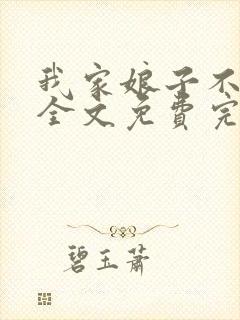 我家娘子不
全文免费完
碧玉萧